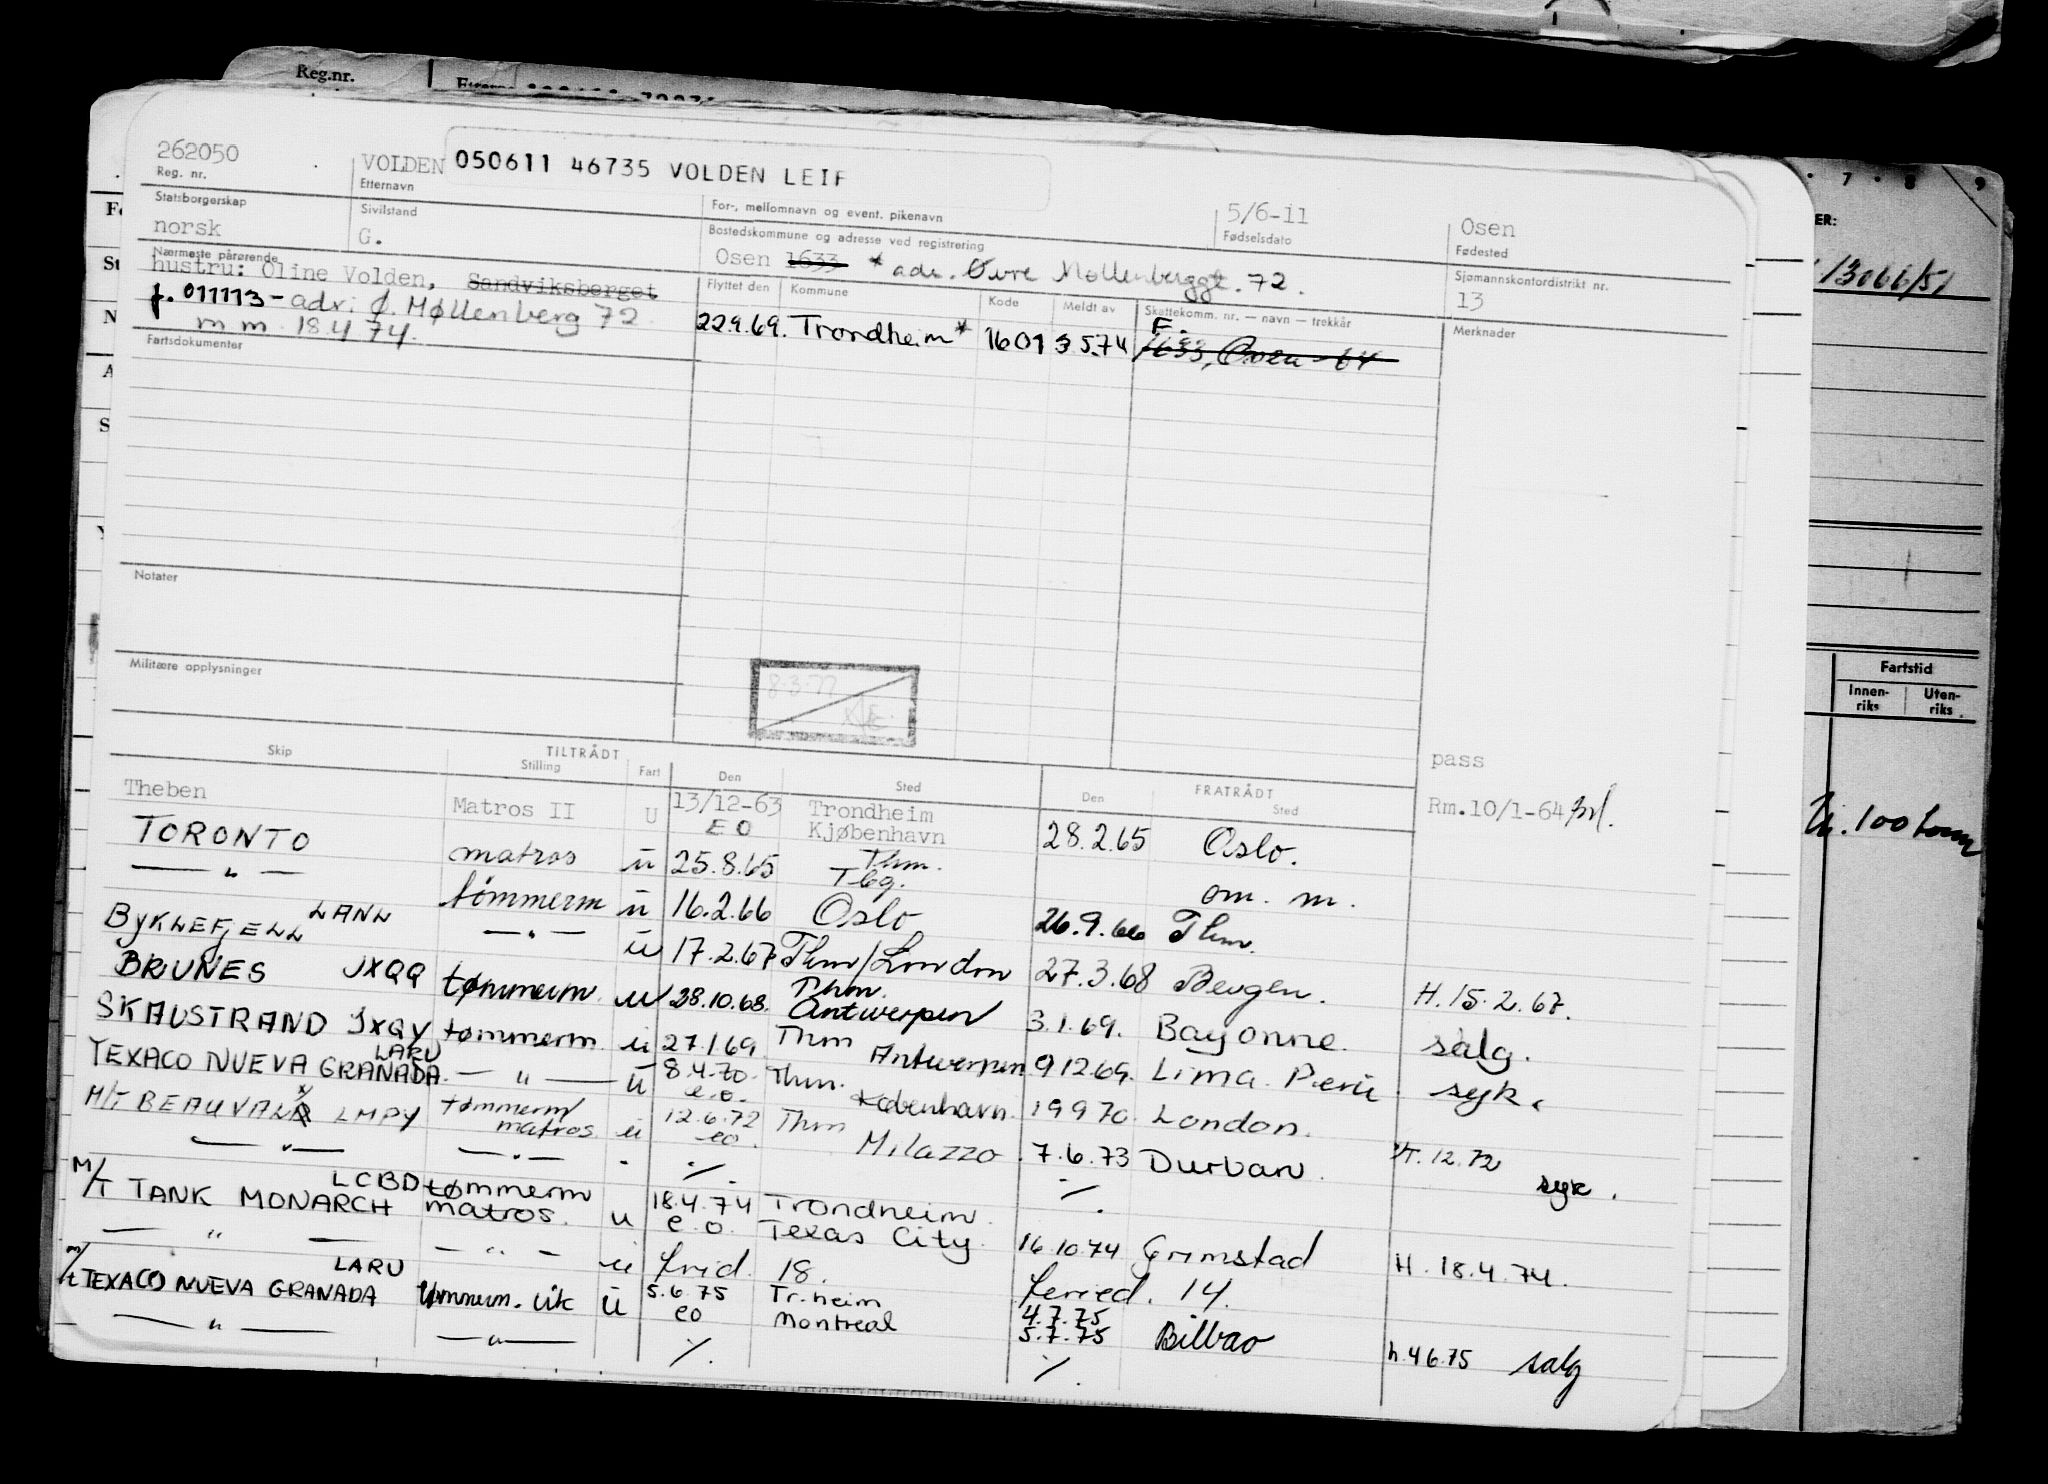 Reg.nr.
262050
Reg. nr.
VOLDEN
Etternavn
050611 46735 VOLDEN LEIF
For-, mellomnavn og event. pikenavn
5/6-11
Fødselsdato
Osen
Fødested
Statsborgerskap
norsk
Sivilstand
G.
Bostedskommune og adresse ved registrering
Osen 1633 * adr. Øvre Møllenberggt. 72.
Sjømannskontordistrikt nr.
13
Nærmeste pårørende
hustru: Oline Volden, Sandviksberget
f. 011113 - adr: Ø. Møllenberg 72
m m 18.4.74.
Flyttet den Kommune Kode Meldt av Skattekomm. nr. — navn — trekkår
Merknader
22.9.69. Trondheim * 1601 3.5.74 F.
1633, Osen - 64
Fartsdokumenter
Notater
Militære opplysninger
8.3.77
pass
Skip TILTRÅDT Stilling Fart Den Sted Den FRATRÅDT Sted
Theben Matros II U 13/12-63 Trondheim Rm.10/1-64
EO Kjøbenhavn 28.2.65 Oslo.
TORONTO matros u 25.8.65 Thm. Tbg. om. m.
— " — tømmerm u 16.2.66 Oslo 26.9.66 Thm.
BYKLEFJELL LANL — " — u 17.2.67 Thm/London 27.3.68 Bergen. H. 15.2.67.
BRUNES JXQQ tømmerm. u 28.10.68. Thm. Antwerpen 3.1.69. Bayonne. salg.
SKAUSTRAND JXQY tømmerm. u 27.1.69 Thm Antwerpen 9.12.69. Lima. Peru syk.
TEXACO NUEVA GRANADA LARU — " — u 8.4.70. e.o. Thm. København 19.9.70. London.
M/T BEAUVAL LMPY tømmerm matros u 12.6.72 eo. Thm Milazzo 7.6.73 Durban. syk.
— " — — " — ٪. ٪.
M/T TANK MONARCH LCBD tømmerm matros. u 18.4.74 e.o. Trondheim. Texas City 16.10.74 Grimstad H. 18.4.74.
— " — — " — u frid. 18. feried. 14.
m/t TEXACO NUEVA GRANADA LARU tømmerm. u 5.6.75 eo Tr.heim Montreal 4.7.75 5.7.75 Bilbao h.4.6.75 salg
— " — — " — ٪. ٪.
7 8 9
ER:
13066/51
Fartstid
Innen-
riks
Uten-
riks